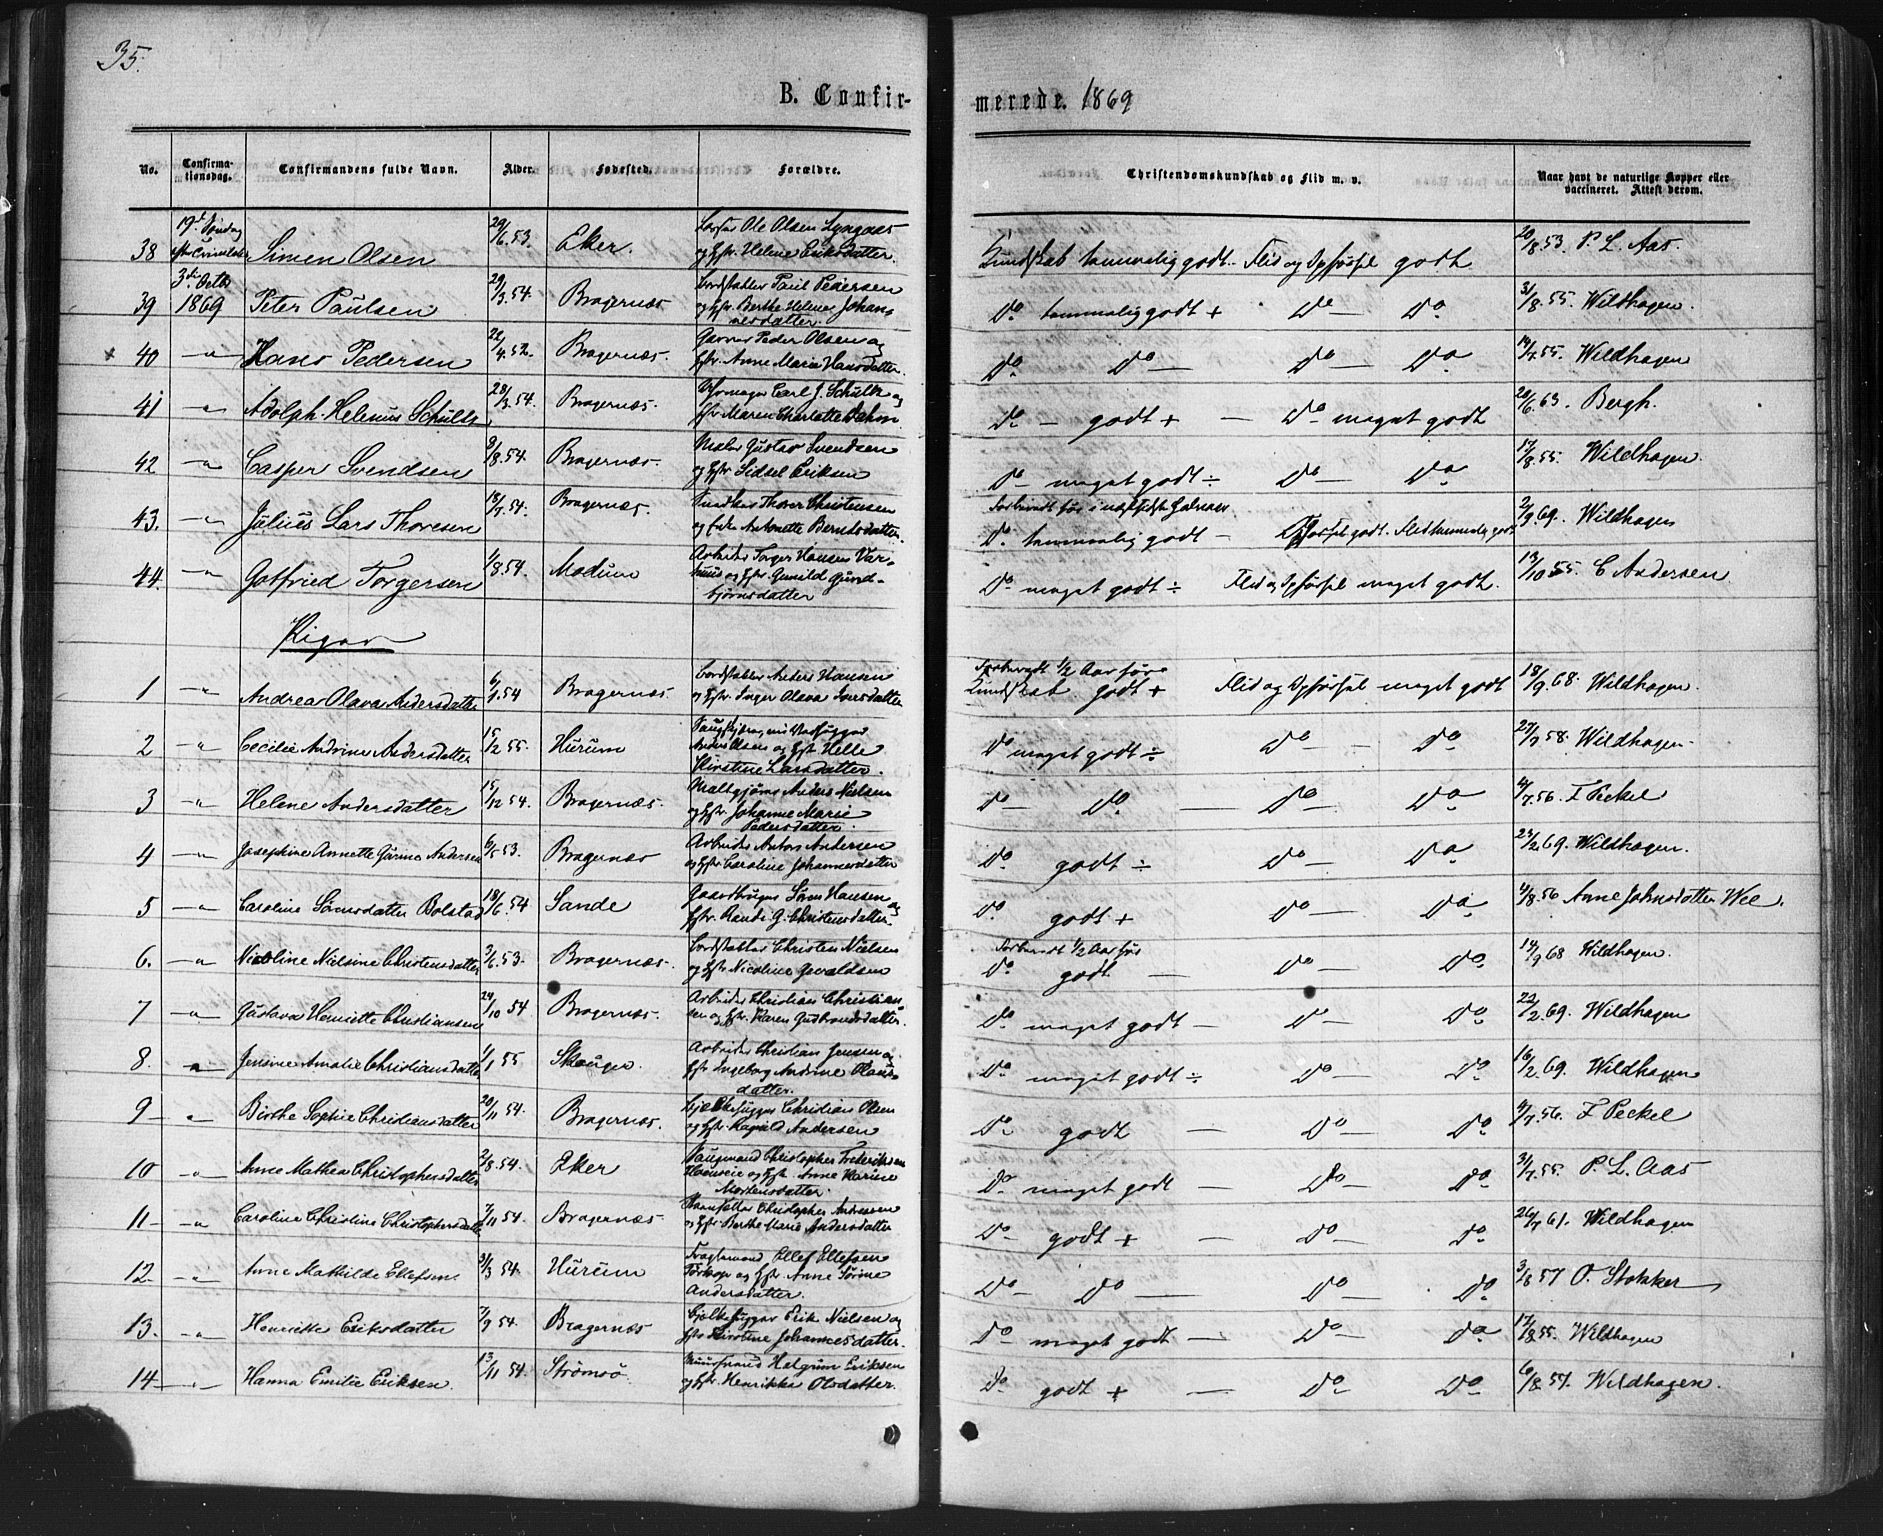 35.
B. Confirmerede. 1869
No. Confirmationsdag. Confirmandens fulde Navn. Alder. Fødested. Forældre. Christendomskundskab og Flid m. v. Naar havt de naturlige Kopper eller vaccineret. Attest derom.
38 19d Søndag Simen Olsen 29/6.53. Eker. Ole Olsen og Hstr. Helene Eriksdatter. Kundskab temmelig godt. Flid og Opførsel godt 20/8.53. P. L. Aas.
39 3die Octbr 1869 Peter Paulsen 29/3.54. Bragernæs Bordstabler Paul Pedersen og Hstr. Berthe Helene Johannesdatter. Do temmelig godt + Do — Do 31/8.55. Wildhagen.
40 — " Hans Pedersen 22/4.52. Bragernæs. Garver Peder Olsen og Hstr. Anne Maria Hansdatter. Do Do — Do Do 19/7.55. Wildhagen
41 " Adolph Helenus Schultz 28/3.54. Bragernæs. Carl J. Schultz og Hstr. Maren Charlotte Do — godt + — Do meget godt 20/6.63. Bergh.
42 — " Casper Svendsen 9/8.54. Bragernæs. Maler Gustav Svendsen og Hstr. Sidsel Eriksen Do — meget godt ÷ Do — Do 17/8.55. Wildhagen.
43. — " Julius Lars Thoresen 18/7.54. Bragernæs. Snedker Thorer Christensen og Enke Antonette Berntsdatter. Do. temmelig godt — Opførsel godt. Flid temmelig godt 2/9.69. Wildhagen
44. — " Gotfried Torgersen 1/8.54. Modum Arbeider Torger Hansen og Hstr. Gunild Gundbjørnsdatter Do meget godt ÷ Flid og Opførsel meget godt. 13/10.55. C Andersen
Piger
1 — " Andrea Olava Andersdatter 6/1.54 Bragernæs. Bordstabler Anders Hansen og Hstr. Inger Olava Iversdatter Forberedt 1/2 Aar før Kundskab godt + Flid og Opførsel meget godt 18/9.68. Wildhagen.
2 — " Cecilie Andrine Andersdatter 15/2 55. Hurum Anders Olsen og Hstr. Helle Kirstine Larsdatter. Do meget godt ÷ Do — Do 27/7.58. Wildhagen.
3 — " Helene Andersdatter 15/12 54. Bragernæs. Maltgjører Anders Nielsen og Hstr. Johanne Marie Pedersdatter. Do — Do — Do — Do 4/7.56. F Peckel
4 — " Josephine Annette Andersen 6/5 53. Bragernæs Arbeider Anton Andersen og Hstr. Caroline Johannesdatter Do godt ÷ Do — Do 23/2 69. Wildhagen.
5 — " Caroline Sørensdatter Bolstad 18/6.54 Sande Gaardbruger Søren Hansen og Hstr. Randi G. Christensdatter. Do godt + Do — Do 4/8.56 Anne Johnsdatter Wee.
6. — " Nicoline Nielsine Christensdatter 3/6.53. Bragernæs. Bordstabler Christen Nielsen og Hstr. Nicoline Forberedt 1/2 Aar før Do godt — Do — Do 14/9 68 Wildhagen.
7 — " Gustava Henriette Christiansen 24/10 54 Bragernæs. Arbeider Christian Christiansen og Hstr. Karen Gudbrandsdatter. Do. meget godt — Do — Do 22/2.69. Wildhagen
8. — " Jensine Amalie Christiansdatter 1/1 55 Skouger. Arbeider Christian Jensen og Hstr. Ingeborg Andrine Olausdatter. Do meget godt ÷ Do — Do 16/2.69. Wildhagen
9 — " Birthe Sophie Christiansdatter 20/11 54. Bragernæs. Bjelkehugger Christian Olsen og Hstr. Ragnild Andersen Do. godt — Do — Do 4/7.56. F Peckel
10 " Anne Mathea Christophersdatter 2/8.54. Eker Saugmand Christopher Frederiksen og Hstr. Anne Karine Mortensdatter. Do meget godt — Do — Do 31/7.55. P. L. Aas
11 — " Caroline Christine Christophersdatter 7/11 54. Bragernæs. Christopher Andersen og Hstr. Berthe Marie Andersdatter Do godt + — Do — Do 26/7 61. Wildhagen
12. — " Anne Mathilde Ellefsen 31/3 54. Hurum Fragtemand Ellef Ellefsen og Hstr. Anne Sørine Andersdatter. Do — Do — Do — Do 3/8 57 O. Stokker
13. — " Henriette Eriksdatter 7/9 54. Bragernæs Bjelkehugger Erik Nielsen og Hstr. Johannesdatter. Do meget godt — Do — Do 17/8.55. Wildhagen
14 — " Hanna Emilie Eriksen. 13/11 54. Strømsø. Eriksen og Hstr. Henrikke Olsdatter. Do godt + — Do Do 6/8.57. Wildhagen.